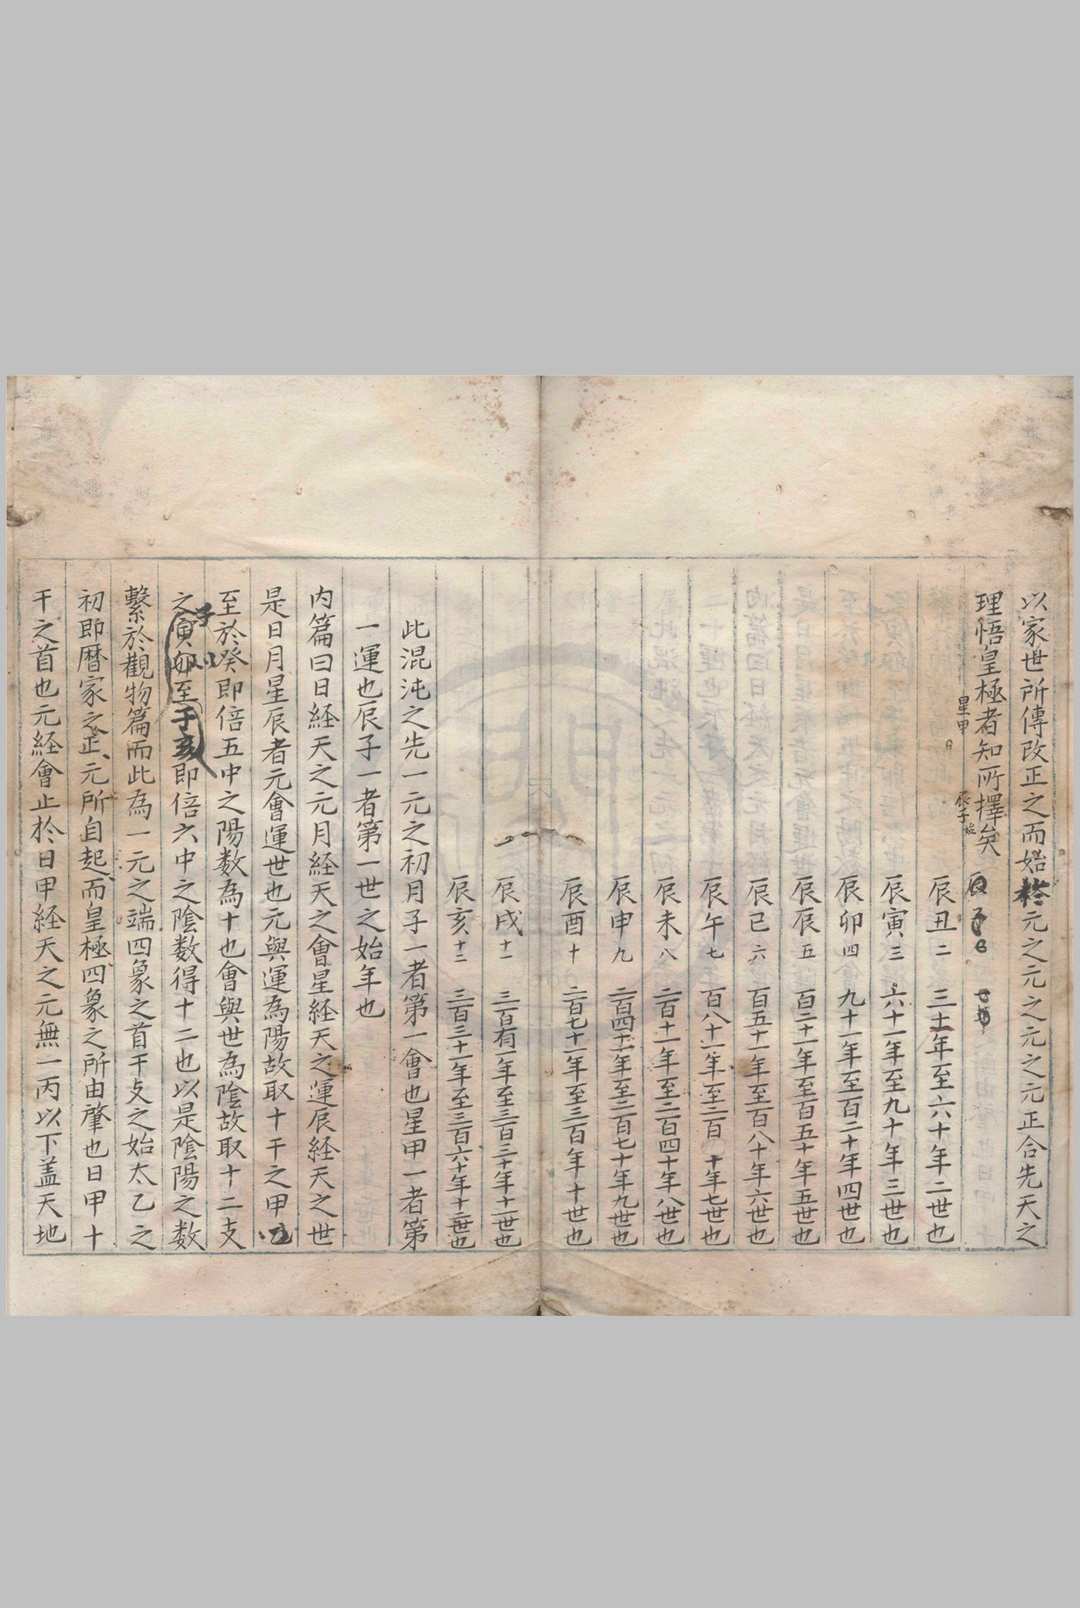 以家世所傳改正之而始於元之元之元之元正合先天之
理悟皇極者知所擇矣
星甲
辰子
辰子
辰丑二 三十一年至六十年二世也
辰寅三 六十一年至九十年三世也
辰卯四 九十一年至百二十年四世也
辰辰五 百二十一年至百五十年五世也
辰巳六 百五十一年至百八十年六世也
辰午七 百八十一年至二百一十年七世也
辰未八 二百十一年至二百四十年八世也
辰申九 二百四十一年至二百七十年九世也
辰酉十 二百七十一年至三百年十世也
辰戌十一 三百有一年至三百三十年十一世也
辰亥十二 三百三十一年至三百六十年十二世也
此混沌之先一元之初月子一者第一會也星甲一者第
一運也辰子一者第一世之始年也
内篇曰日経天之元月経天之會星経天之運辰経天之世
是日月星辰者元會運世也元與運為陽故取十干之甲乙
至於癸即倍五中之陽数為十也會與世為陰故取十二支
之子寅卯至于亥即倍六中之陰数得十二也以是陰陽之数
繫於觀物篇而此為一元之端四象之首干支之始太乙之
初即曆家之正元所自起而皇極四象之所由肇也日甲十
干之首也元経會止於日甲経天之元無一丙以下盖天地